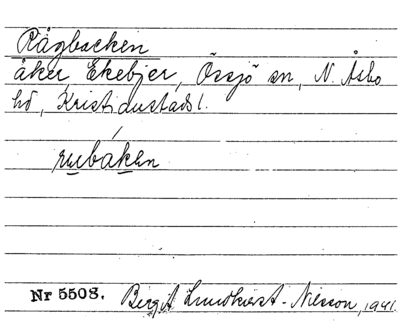 Rågbacken
åker, Ekebjer, Össjö sn, N. Åsbo
hd, Kristianstads l.
rubáken
Nr 5508. Birgit Lundkvist-Nilsson, 1941.